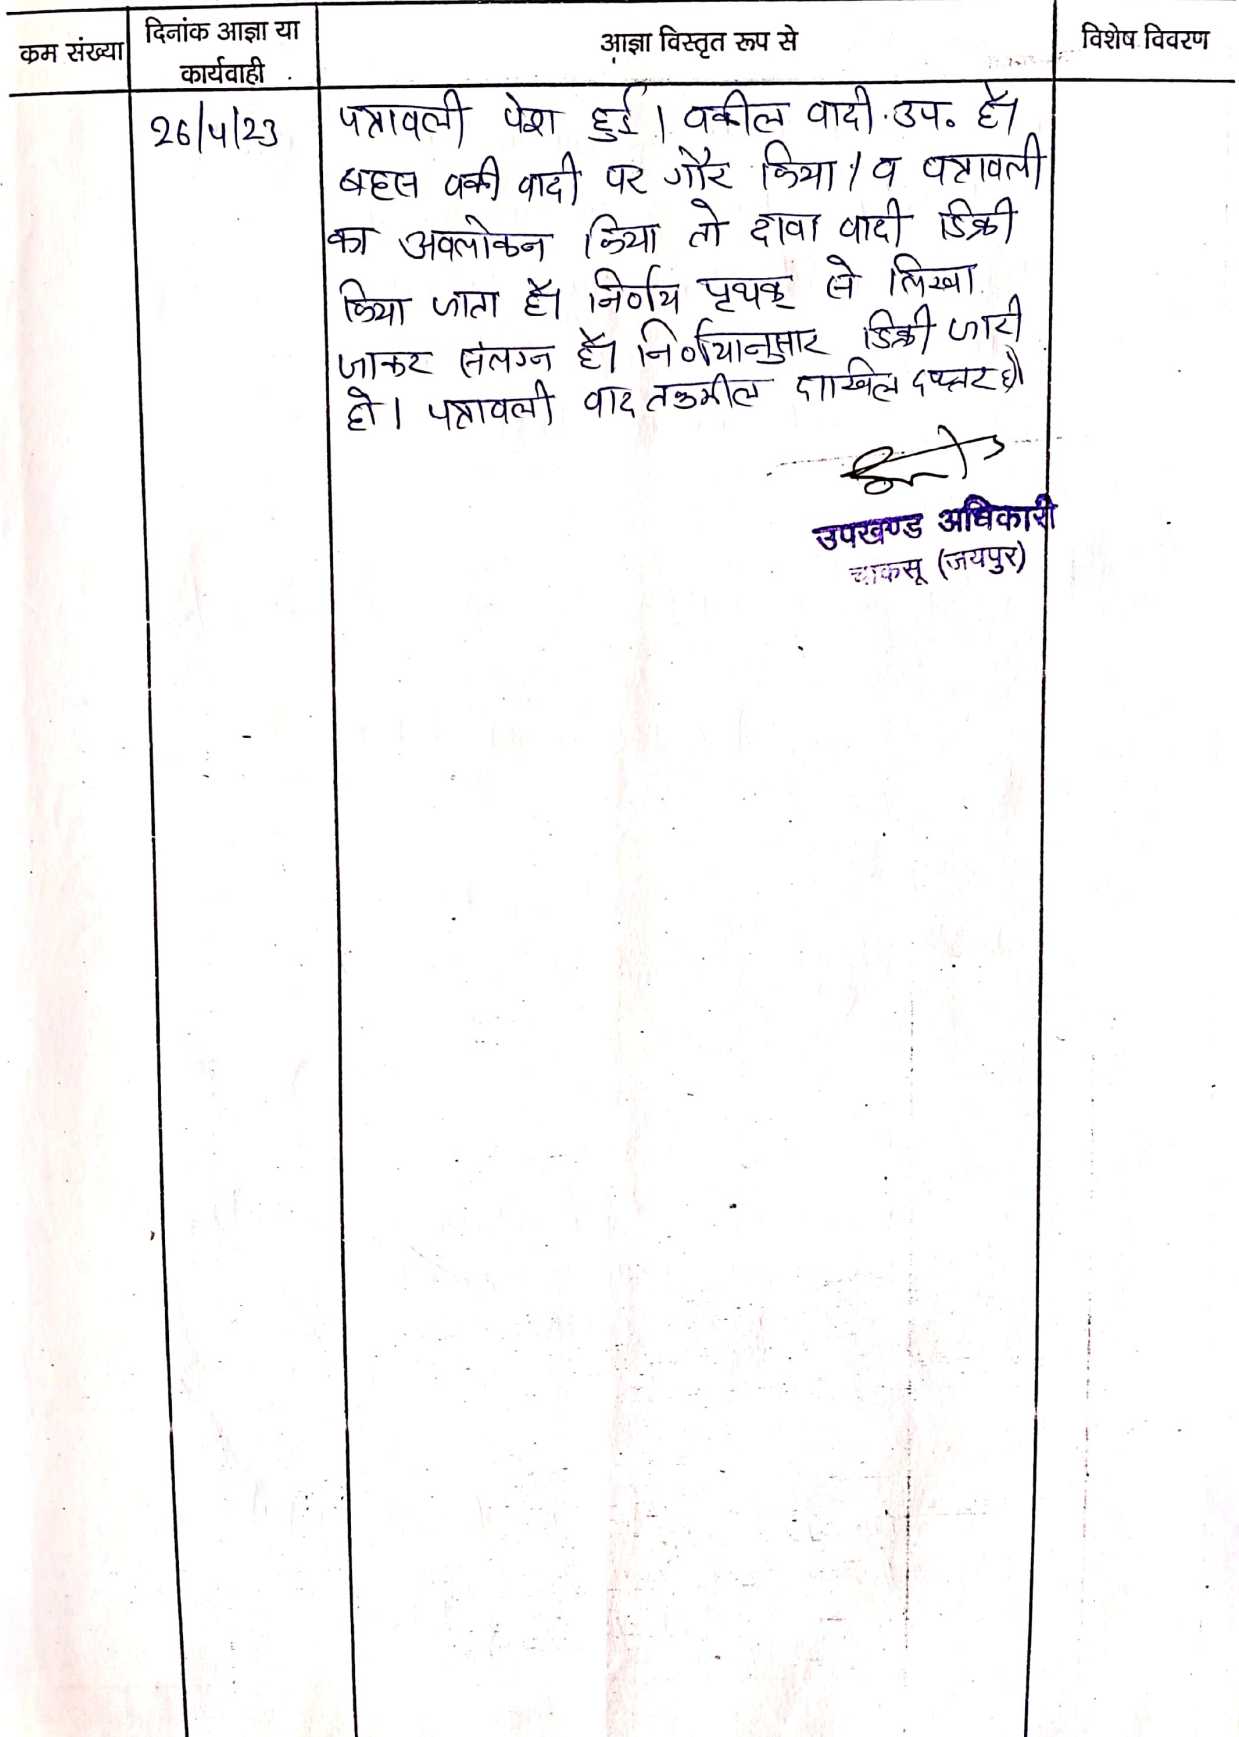 कम संख्या
दिनांक आज्ञा या
कार्यवाही
आज्ञा विस्तृत रूप से
विशेष विवरण
26/4/23
पत्रावली पेश हुई। वकील वादी उप. है।
बहस वकी वादी पर गौर किया। व पत्रावली
का अवलोकन किया तो दावा वादी डिक्री
किया जाता है। निर्णय पृथक् से लिखा
जाकर संलग्न है। निर्णयानुसार डिक्री जारी
हो। पत्रावली वाद तकमील दाखिल दफ्तर हो
उपखण्ड अधिकारी
चाकसू (जयपुर)